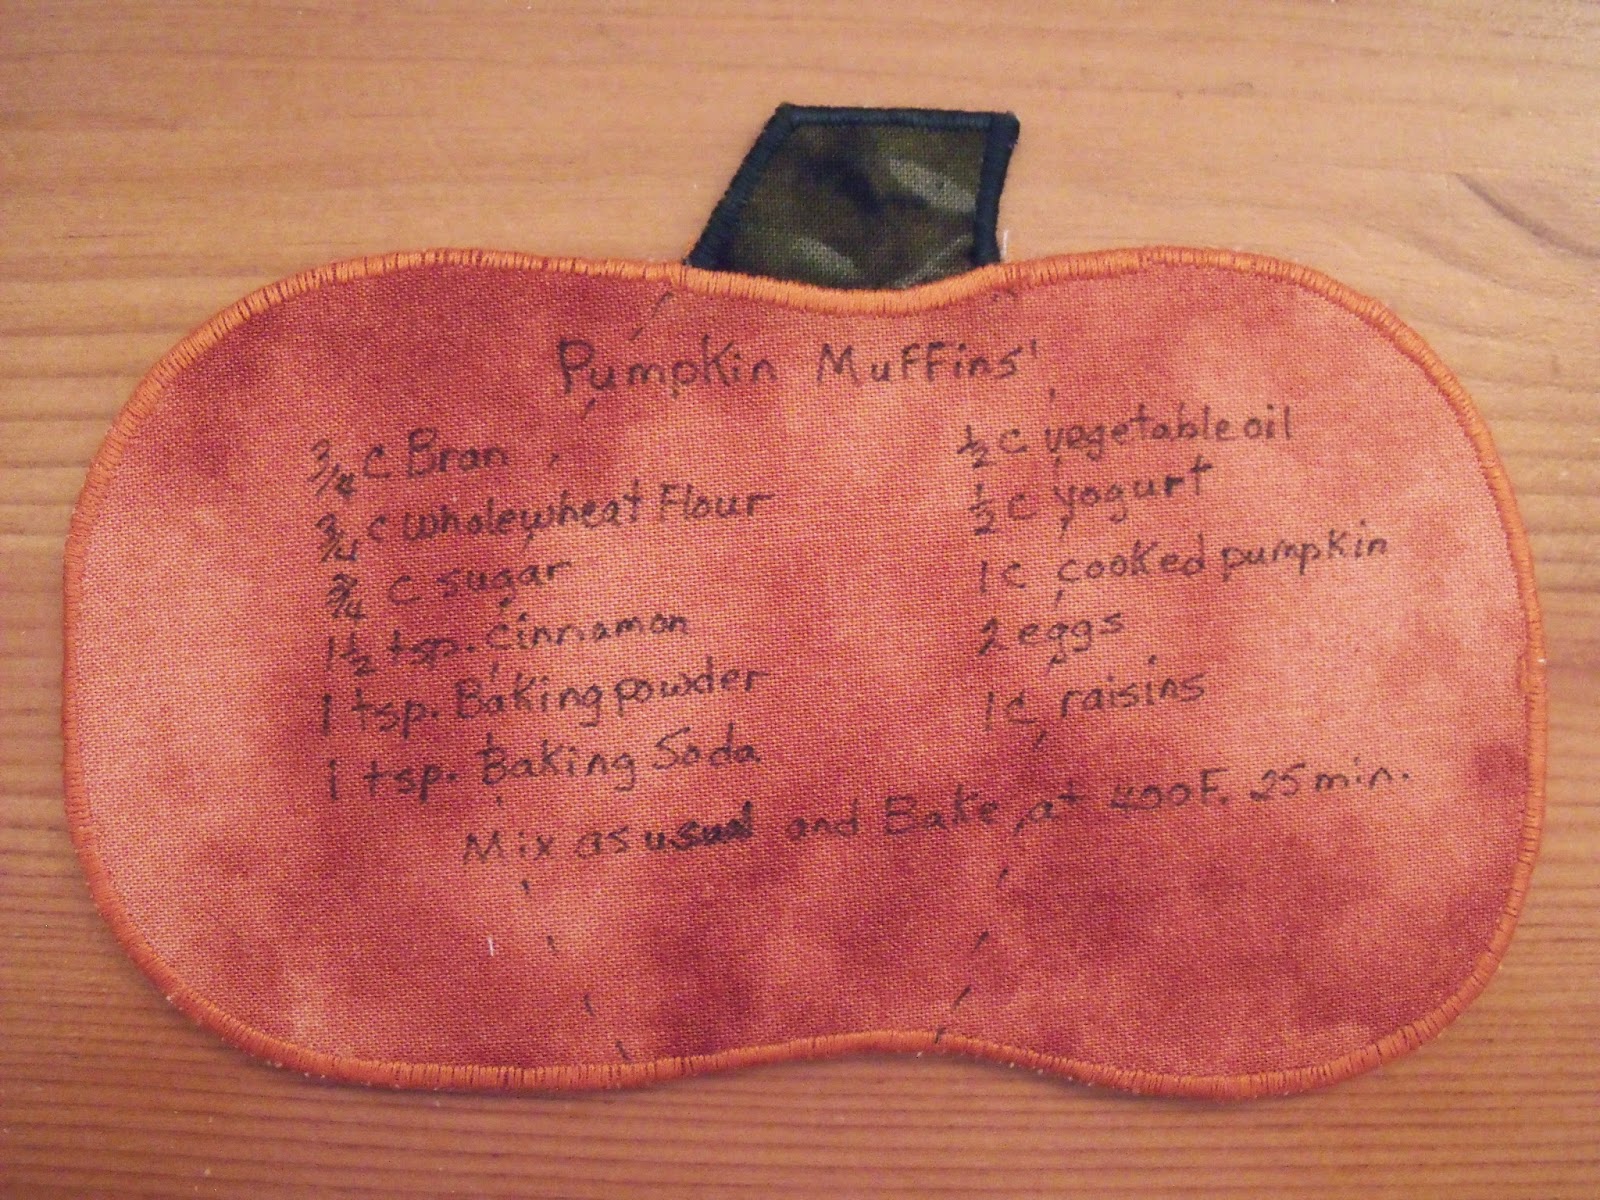 Pumpkin Muffins'
3/4 c Bran
3/4 c wholewheat Flour
3/4 c sugar
1 1/2 tsp. cinnamon
1 tsp. Baking powder
1 tsp. Baking Soda
1/2 c vegetable oil
1/2 c yogurt
1 c cooked pumpkin
2 eggs
1 c raisins
Mix as usual and Bake at 400F. 25 min.